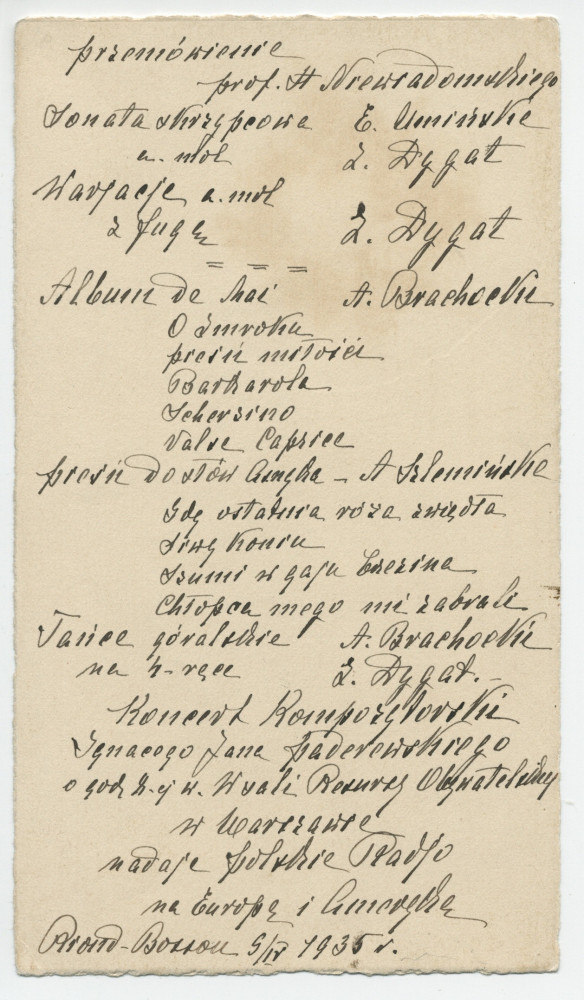 przemówienie
prof. St Niewiadomskiego
Sonata skrzypcowa E. Umińska
a. mol Z. Dygat
Warjacje a. mol
z fugą Z. Dygat
Album de Mai A. Brachocki
O Zmroku
pieśń miłości
Barkarola
Scherzino
Valse Caprice
pieśń do słów Asnyka – A Szlemińska
Gdy ostatnia róża zwiędła
Siwy Koniu
Szumi w gaju brzezina
Chłopca mego mi zabrali
Tańce góralskie A. Brachocki
na 4-ręce Z. Dygat. –
Koncert Kompozytorski
Ignacego Jana Paderewskiego
o godz 8-ej w. W sali Resursy Obywatelskiej
w Warszawie
nadaje polskie Radjo
na Europę i Amerykę
Riond-Bosson 5/IV 1935 r.